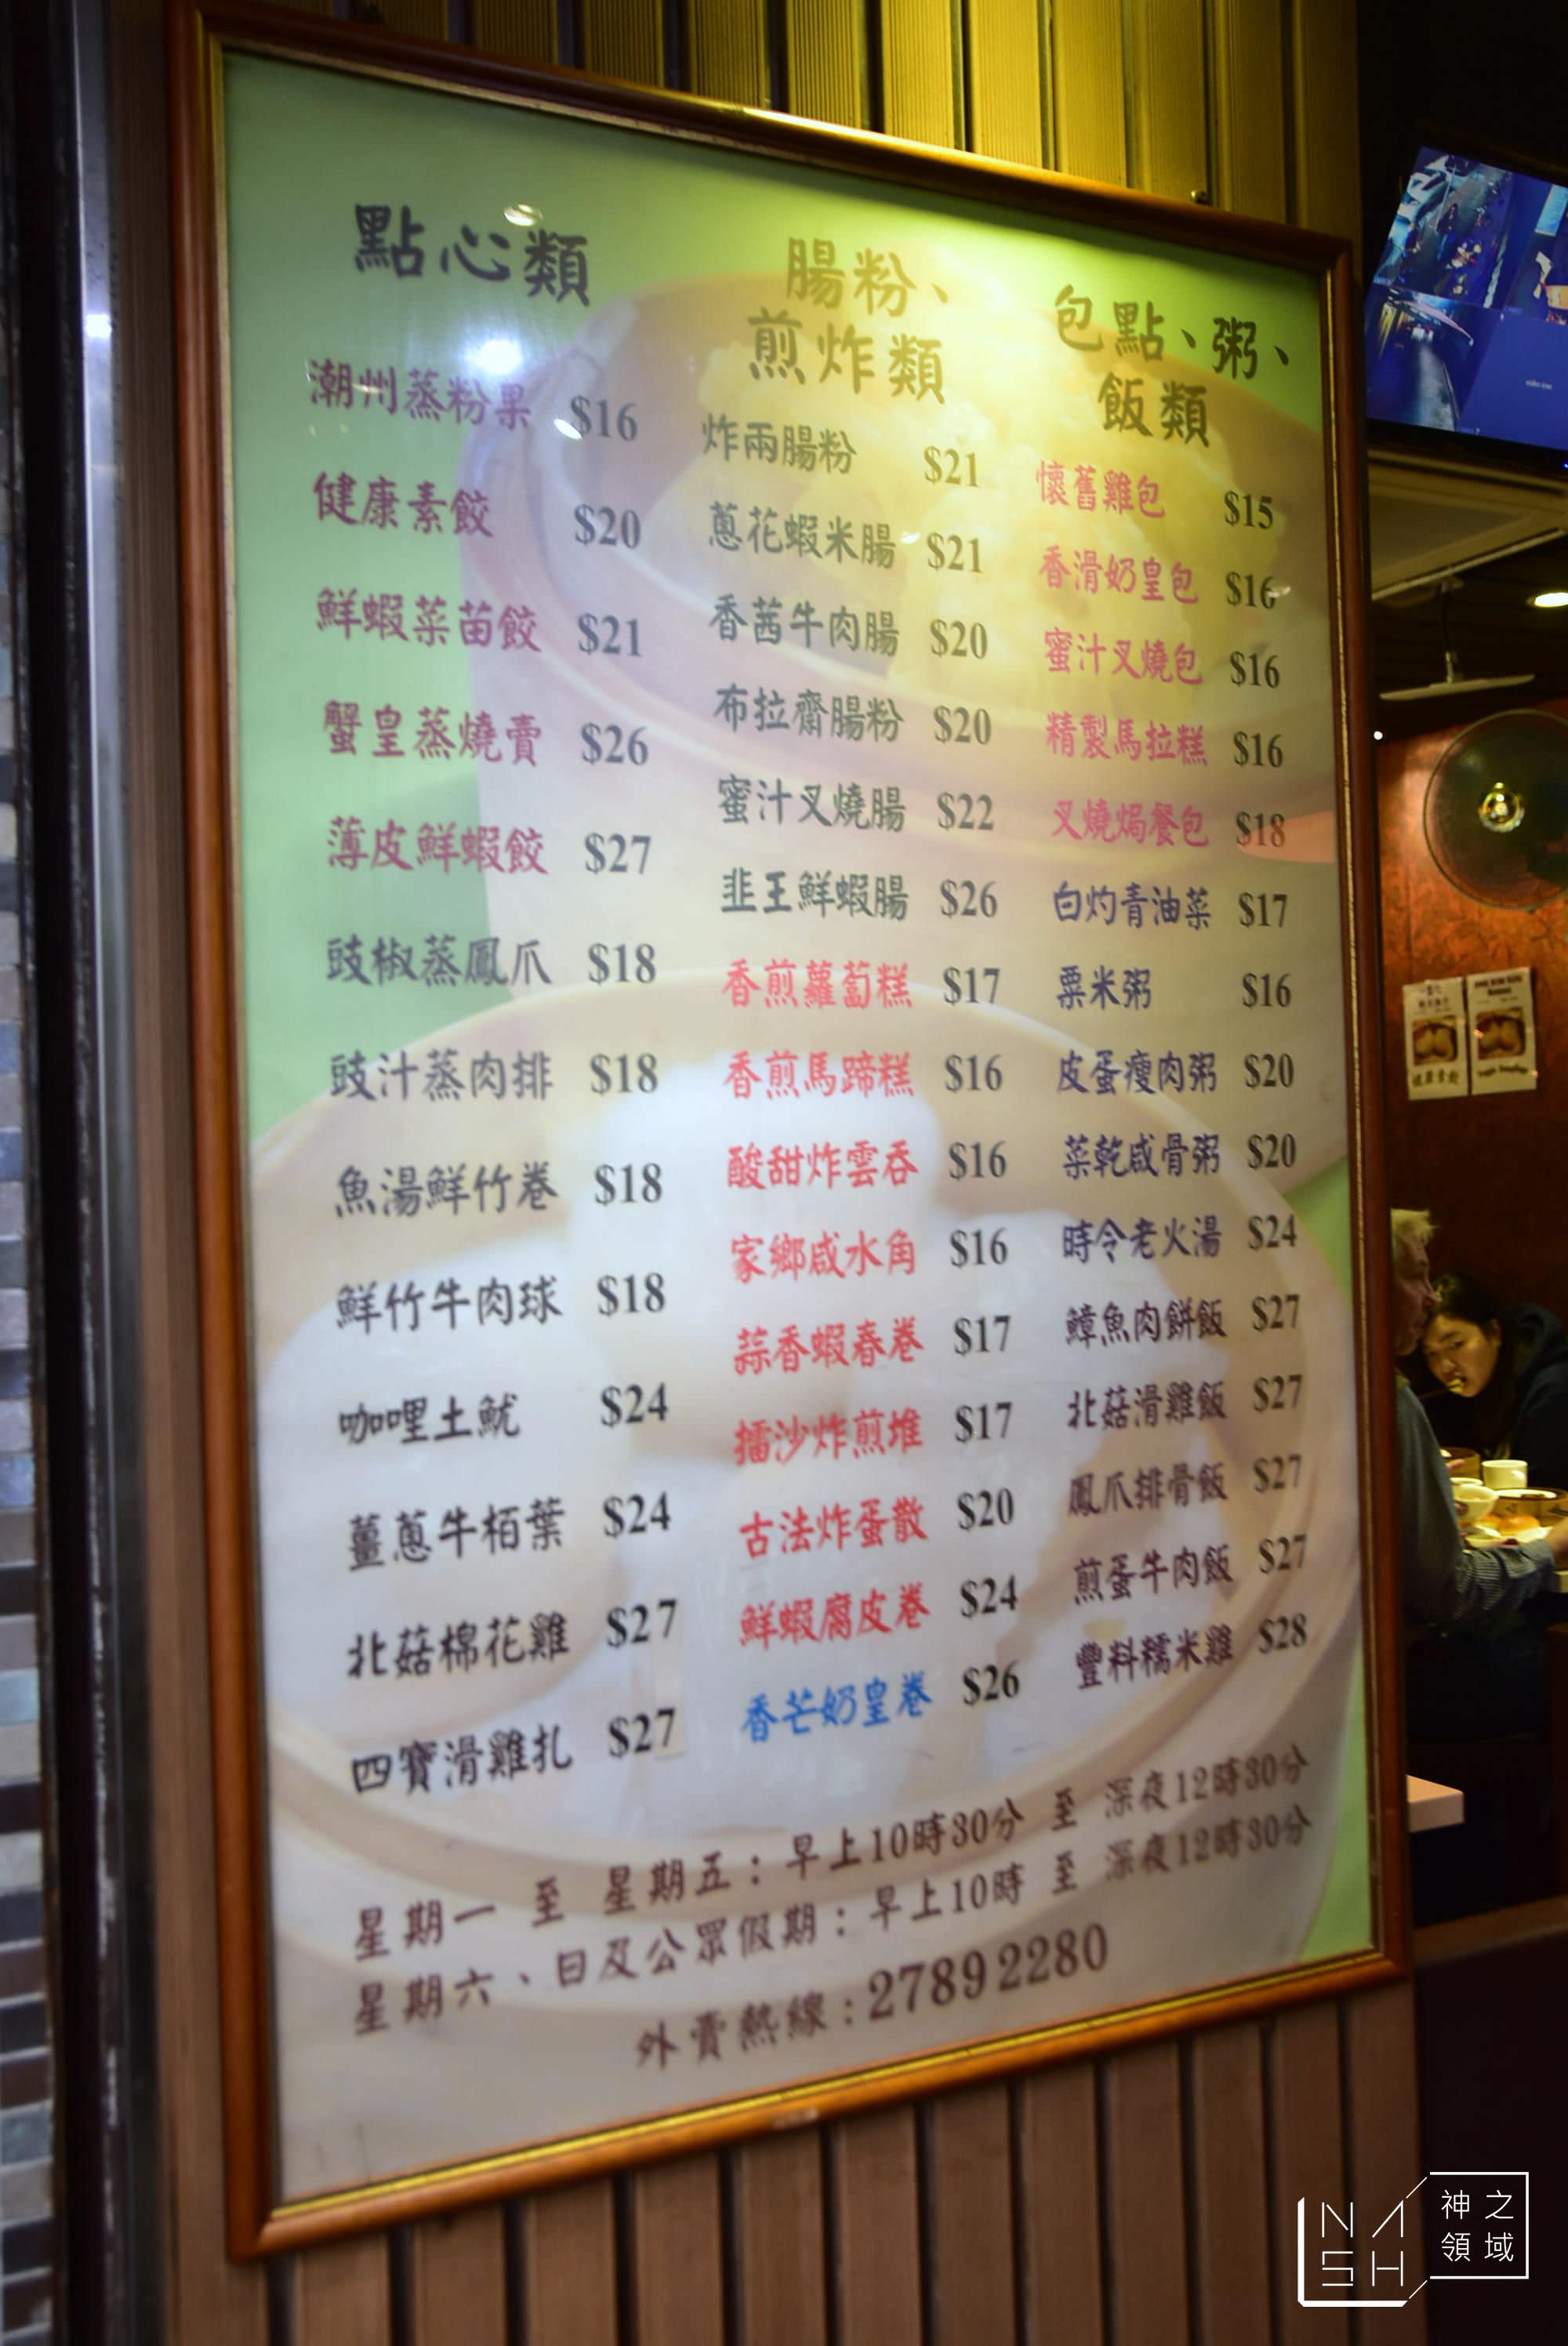 點心類
潮州蒸粉果 $16
健康素餃 $20
鮮蝦菜苗餃 $21
蟹皇蒸燒賣 $26
薄皮鮮蝦餃 $27
豉椒蒸鳳爪 $18
豉汁蒸肉排 $18
魚湯鮮竹卷 $18
鮮竹牛肉球 $18
咖哩土魷 $24
薑蔥牛栢葉 $24
北菇棉花雞 $27
四寶滑雞扎 $27
腸粉、
煎炸類
炸兩腸粉 $21
蔥花蝦米腸 $21
香茜牛肉腸 $20
布拉齋腸粉 $20
蜜汁叉燒腸 $22
韭王鮮蝦腸 $26
香煎蘿蔔糕 $17
香煎馬蹄糕 $16
酸甜炸雲吞 $16
家鄉咸水角 $16
蒜香蝦春卷 $17
擂沙炸煎堆 $17
古法炸蛋散 $20
鮮蝦腐皮卷 $24
香芒奶皇卷 $26
包點、粥、
飯類
懷舊雞包 $15
香滑奶皇包 $16
蜜汁叉燒包 $16
精製馬拉糕 $16
叉燒焗餐包 $18
白灼青油菜 $17
粟米粥 $16
皮蛋瘦肉粥 $20
菜乾咸骨粥 $20
時令老火湯 $24
鱆魚肉餅飯 $27
北菇滑雞飯 $27
鳳爪排骨飯 $27
煎蛋牛肉飯 $27
豐料糯米雞 $28
星期一 至 星期五：早上10時30分 至 深夜12時30分
星期六、日及公眾假期：早上10時 至 深夜12時30分
外賣熱線：27892280
NASH
神之
領域